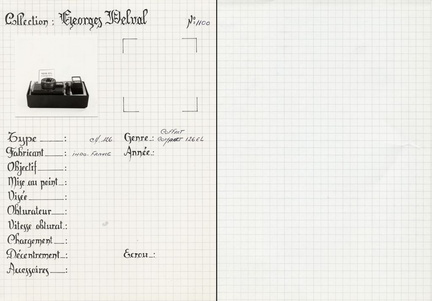 Collection : Georges Delval N° 1100
Type : cf. 126 Genre : Coffret Compact 126 EL
Fabricant : indo. France Année :
Objectif :
Mise au point :
Visée :
Obturateur :
Vitesse obturat. :
Chargement :
Décentrement : Ecrou :
Accessoires :